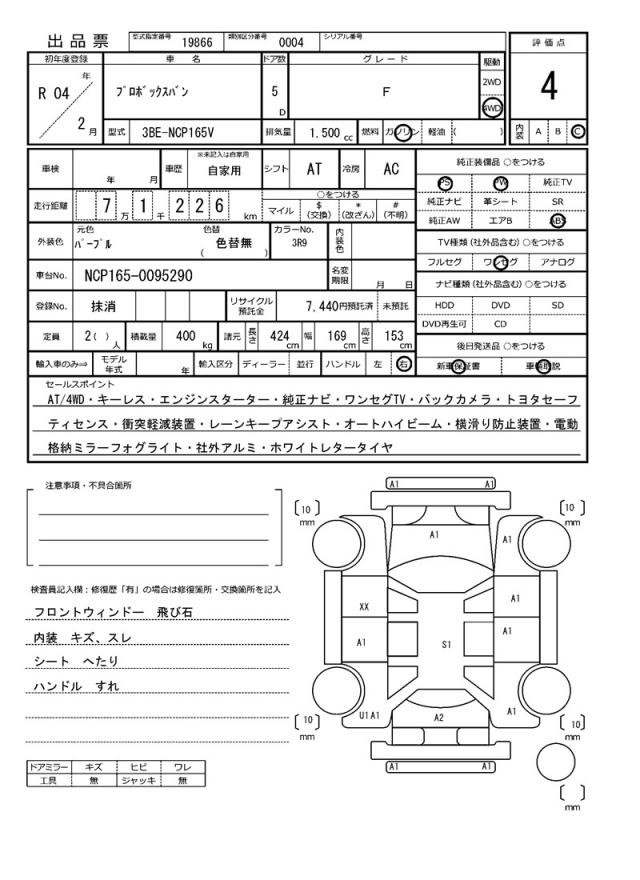 出品票 型式指定番号 19866 類別区分番号 0004 シリアル番号
評価点
4
初年度登録 車名 ドア数 グレード 駆動
R 04 年 2 月
プロボックスバン 5 D F 2WD 4WD
型式 3BE-NCP165V 排気量 1.500 cc 燃料 ガソリン 軽油 ( )
内装 A B C
車検 年 月 車歴 ※未記入は自家用 自家用 シフト AT 冷房 AC
走行距離 7 万 1 千 2 2 6 km
○をつける
マイル $ (交換) * (改ざん) # (不明)
外装色 元色 パープル 色替 ( 色替無 ) カラーNo. 3R9 内装色
車台No. NCP165-0095290 名変期限 月 日
登録No. 抹消 リサイクル預託金 7,440円預託済 未預託
定員 2( )人 積載量 400 kg 諸元 長さ 424 cm 幅 169 cm 高さ 153 cm
輸入車のみ⇒ モデル年式 年 輸入区分 ディーラー 並行 ハンドル 左 右
純正装備品 ○をつける
PS PW 純正TV
純正ナビ 革シート SR
純正AW エアB ABS
TV種類(社外品含む)○をつける
フルセグ ワンセグ アナログ
ナビ種類(社外品含む)○をつける
HDD DVD SD
DVD再生可 CD
後日発送品 ○をつける
新車保証書 車輌取説
セールスポイント
AT/4WD・キーレス・エンジンスターター・純正ナビ・ワンセグTV・バックカメラ・トヨタセーフ
ティセンス・衝突軽減装置・レーンキープアシスト・オートハイビーム・横滑り防止装置・電動
格納ミラーフォグライト・社外アルミ・ホワイトレタータイヤ
注意事項・不具合箇所
検査員記入欄：修復歴「有」の場合は修復箇所・交換箇所を記入
フロントウィンドー 飛び石
内装 キズ、スレ
シート へたり
ハンドル すれ
ドアミラー キズ ヒビ ワレ
工具 無 ジャッキ 無
A1 A1
10 mm
10 mm
A1
A1
XX
A1
A1
S1
A1
U1A1
A2
A1
10 mm
10 mm
A1 A1
mm